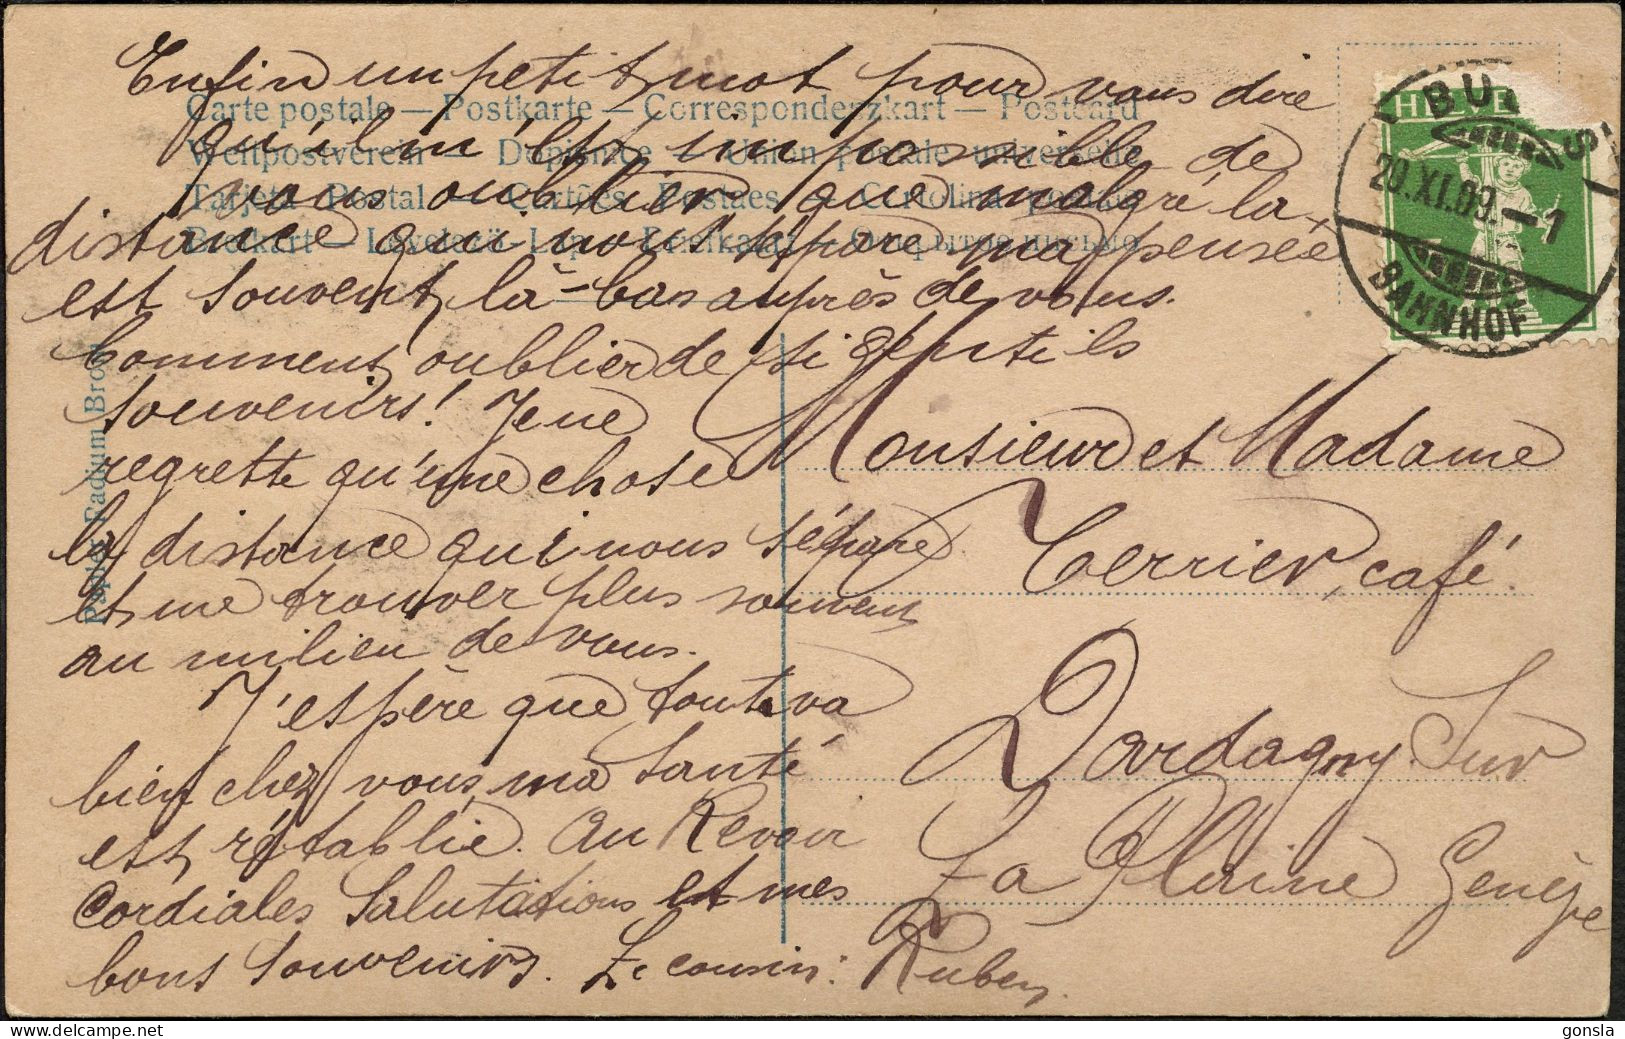 Enfin un petit mot pour vous dire
qu'il m'est impossible de
vous oublier que malgré la
distance qui nous sépare ma pensée
est souvent là-bas auprès de vous.
Comment oublier de si gentils
souvenirs! Je ne
regrette qu'une chose
la distance qui nous sépare.
et me trouver plus souvent
au milieu de vous.
J'espère que tout va
bien chez vous, ma santé
est rétablie. Au Revoir
Cordiales Salutations et mes
bons souvenirs. Le cousin: Ruben.
Monsieur et Madame
Terrier, café.
Dardagny. Sur
La Plaine Genève
Carte postale — Postkarte — Correspondenzkart — Postcard
Weltpostverein — Dopisnice — Union postale universelle
Tarjeta Postal — Cartões Postaes — Cartolina postale
Brefkort — Levelezö-Lap — Briefkaart — Открытое письмо
Papier Radium Brom
HELVE
BU S
20.XI.09.–1
BAHNHOF
gonsla